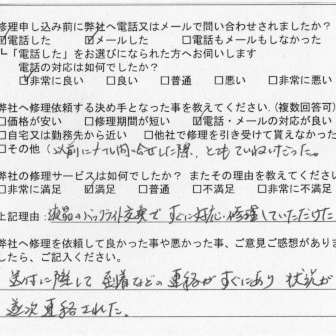 修理申し込み前に弊社へ電話又はメールで問い合わせされましたか？
☑電話した ☑メールした □電話もメールもしなかった
「電話した」をお選びになられた方へお伺いします
電話の対応は如何でしたか？
☑非常に良い □良い □普通 □悪い □非常に悪い
弊社へ修理依頼する決め手となった事を教えてください。(複数回答可)
□価格が安い □修理期間が短い ☑電話・メールの対応が良い
□自宅又は勤務先から近い □他社で修理を引き受けて貰えなかった
□その他（以前にメール問い合せした際、とてもていねいだった。
弊社の修理サービスは如何でしたか？ またその理由を教えてください
□非常に満足 ☑満足 □普通 □不満足 □非常に不満足
上記理由：液晶のバックライト交換ですぐに対応・修理していただけた
弊社へ修理を依頼して良かった事や悪かった事、ご意見ご感想があり
したら、ご記入ください。
送付に際して 到着などの連絡がすぐにあり 状況が
逐次連絡された。